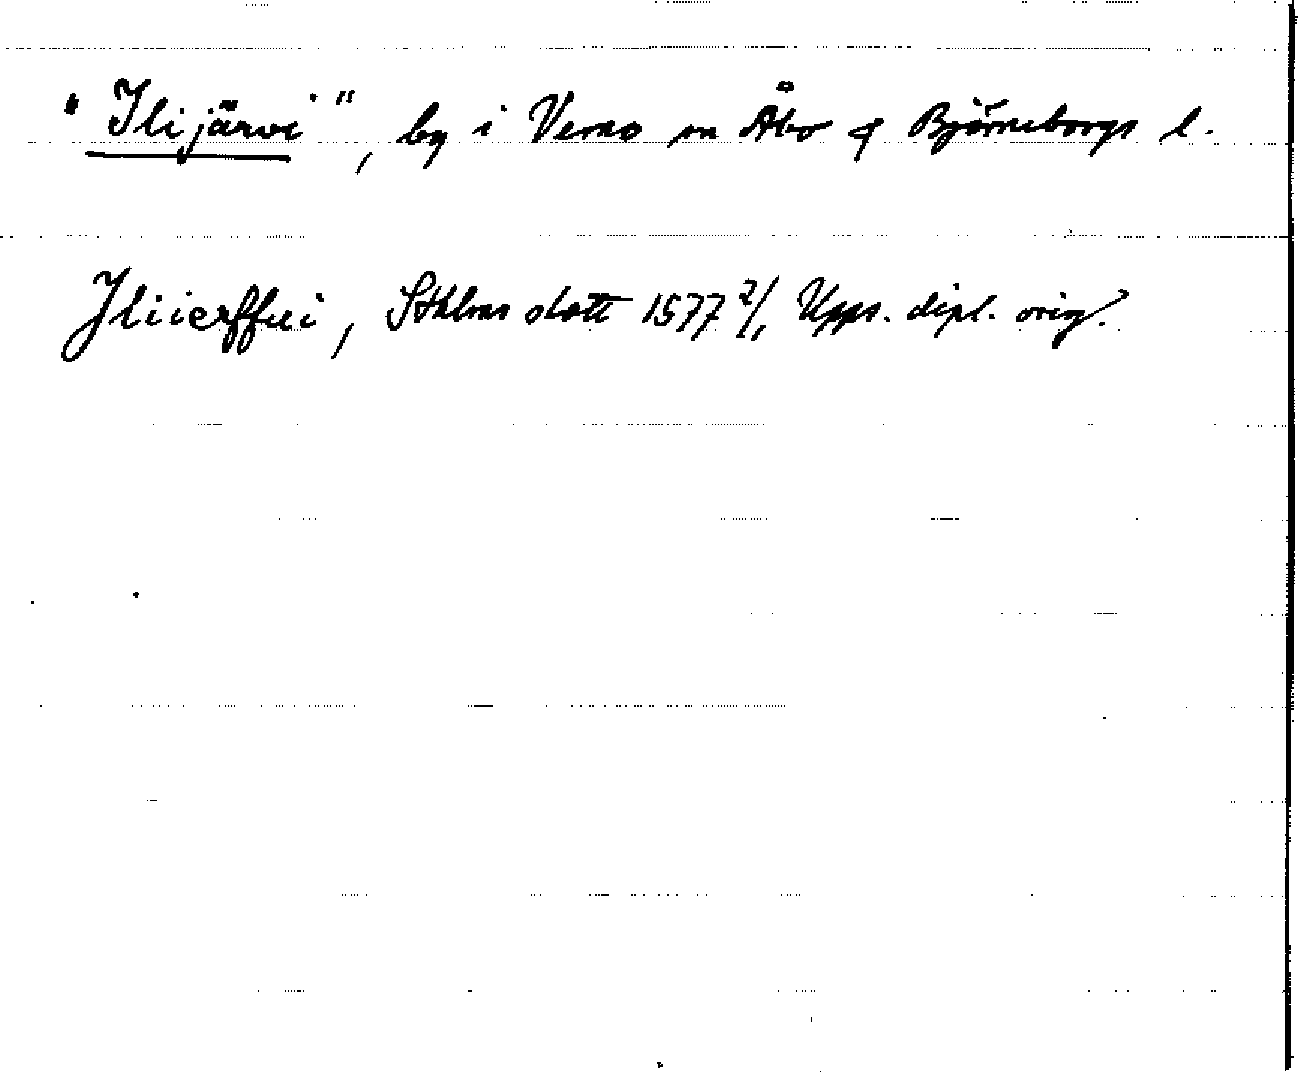 "Ilijärvi", by i Vemo sn Åbo & Björneborgs l.
Iliierffui, Sthlms slott 1577 2/1 Upps. dipl. orig.